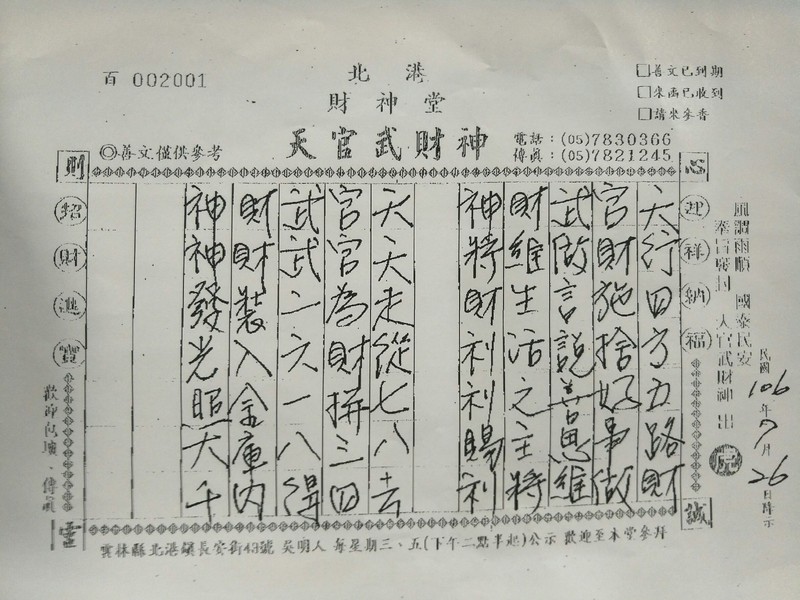 百 002001
北港
財神堂
天官武財神
◎善文僅供參考
電話：(05)7830366
傳真：(05)7821245
□善文已到期
□來函已收到
□請來參香
風調雨順 國泰民安
天官武財神 出
民國106年9月26日降示
心誠則靈
迎祥納福
招財進寶
天行四方五路財
官財施捨好事做
武做言說善思維
財維生活之主將
神將財利利賜利
天天走從七八去
官官為財拼三四
武武二六一八得
財財裝入金庫內
神神發光照大千
歡迎
雲林縣北港鎮長安街43號 吳明人 每星期三、五(下午二點半起)公示 歡迎至本堂參拜